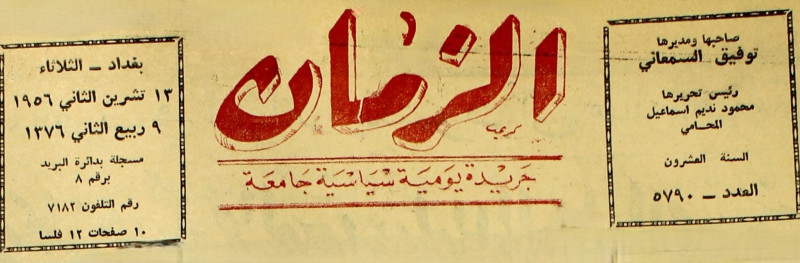 صاحبها ومديرها
توفيق السمعاني
رئيس تحريرها
محمود نديم اسماعيل
المحامي
السنة العشرون
العدد ــ ٥٧٩٠
الزمان
جريدة يومية سياسية جامعة
بغداد ــ الثلاثاء
١٣ تشرين الثاني ١٩٥٦
٩ ربيع الثاني ١٣٧٦
مسجلة بدائرة البريد
برقم ٨
رقم التلفون ٧١٨٢
١٠ صفحات ١٢ فلسا